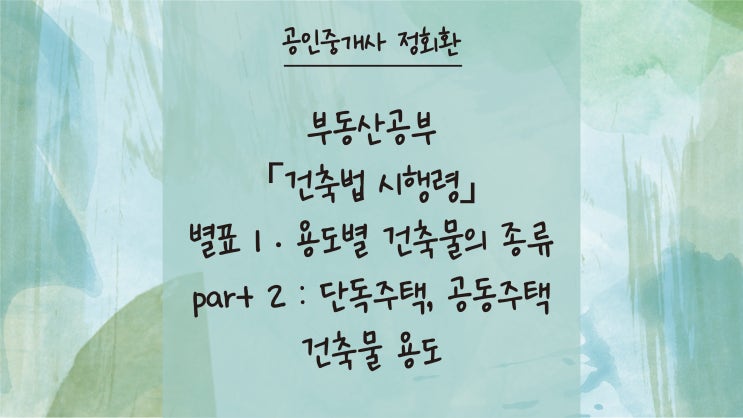 공인중개사 정회환
부동산공부
「건축법 시행령」
별표 1. 용도별 건축물의 종류
part 2 : 단독주택, 공동주택
건축물 용도